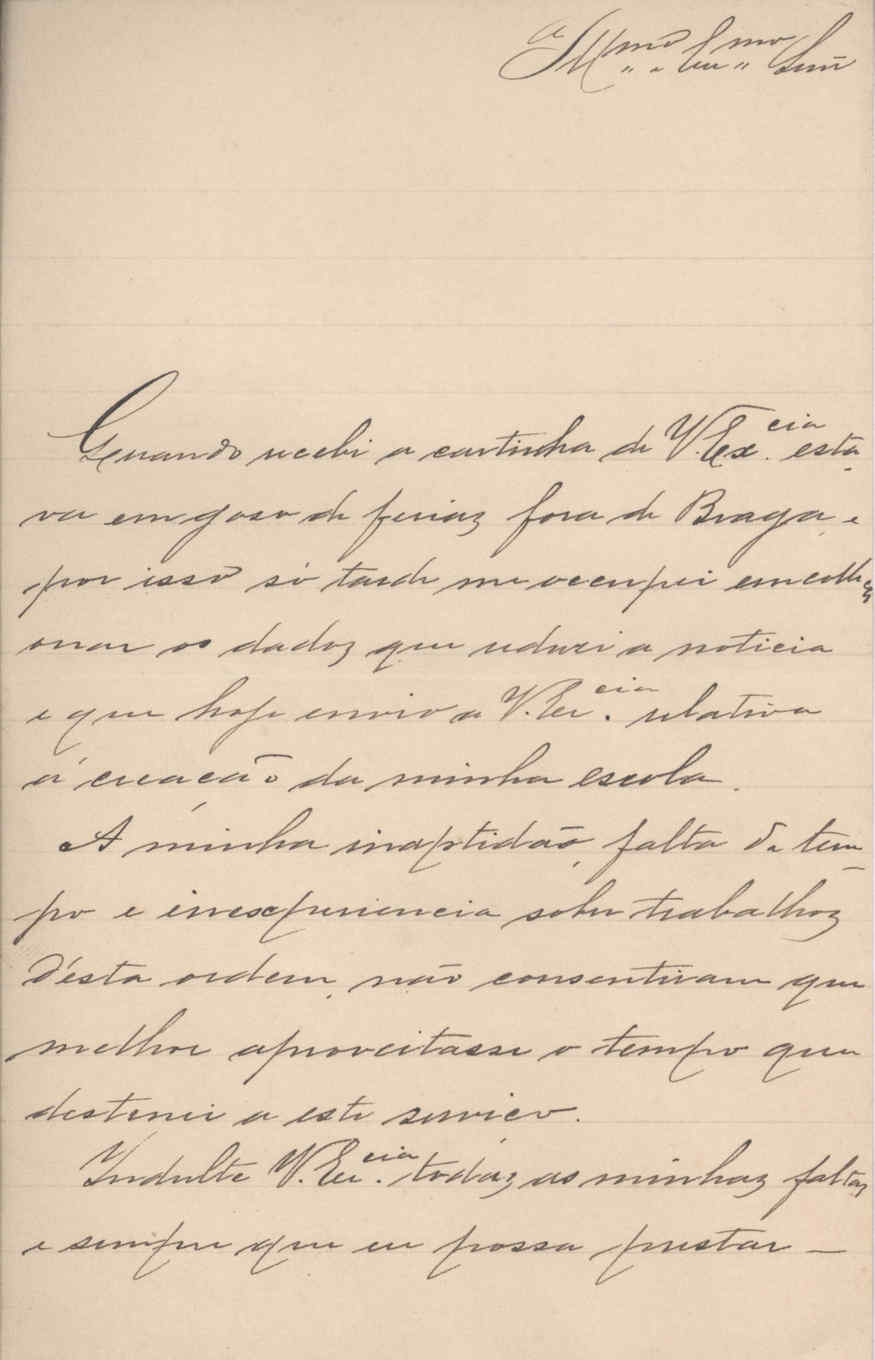 Ill.mo e Ex.mo Snr.
Quando recebi a cartinha de V. Ex.cia esta-
va em goso de ferias fora de Braga, e
por isso só tarde me occupei em
os dados que reduzi a noticia
e que hoje envio a V. Ex.cia relativa
á creação da minha escola.
A minha inaptidão, falta de tem-
po e inexperiencia sobre trabalhos
d'esta ordem, não consentiram que
melhor aproveitasse o tempo que
destinei a este serviço.
Indulte V. Ex.cia todas as minhas faltas
e sempre que eu possa prestar —